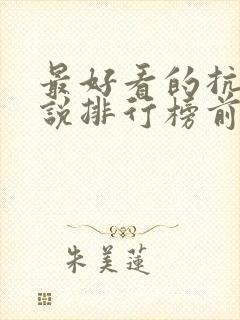 最好看的抗
说排行榜前
朱美莲